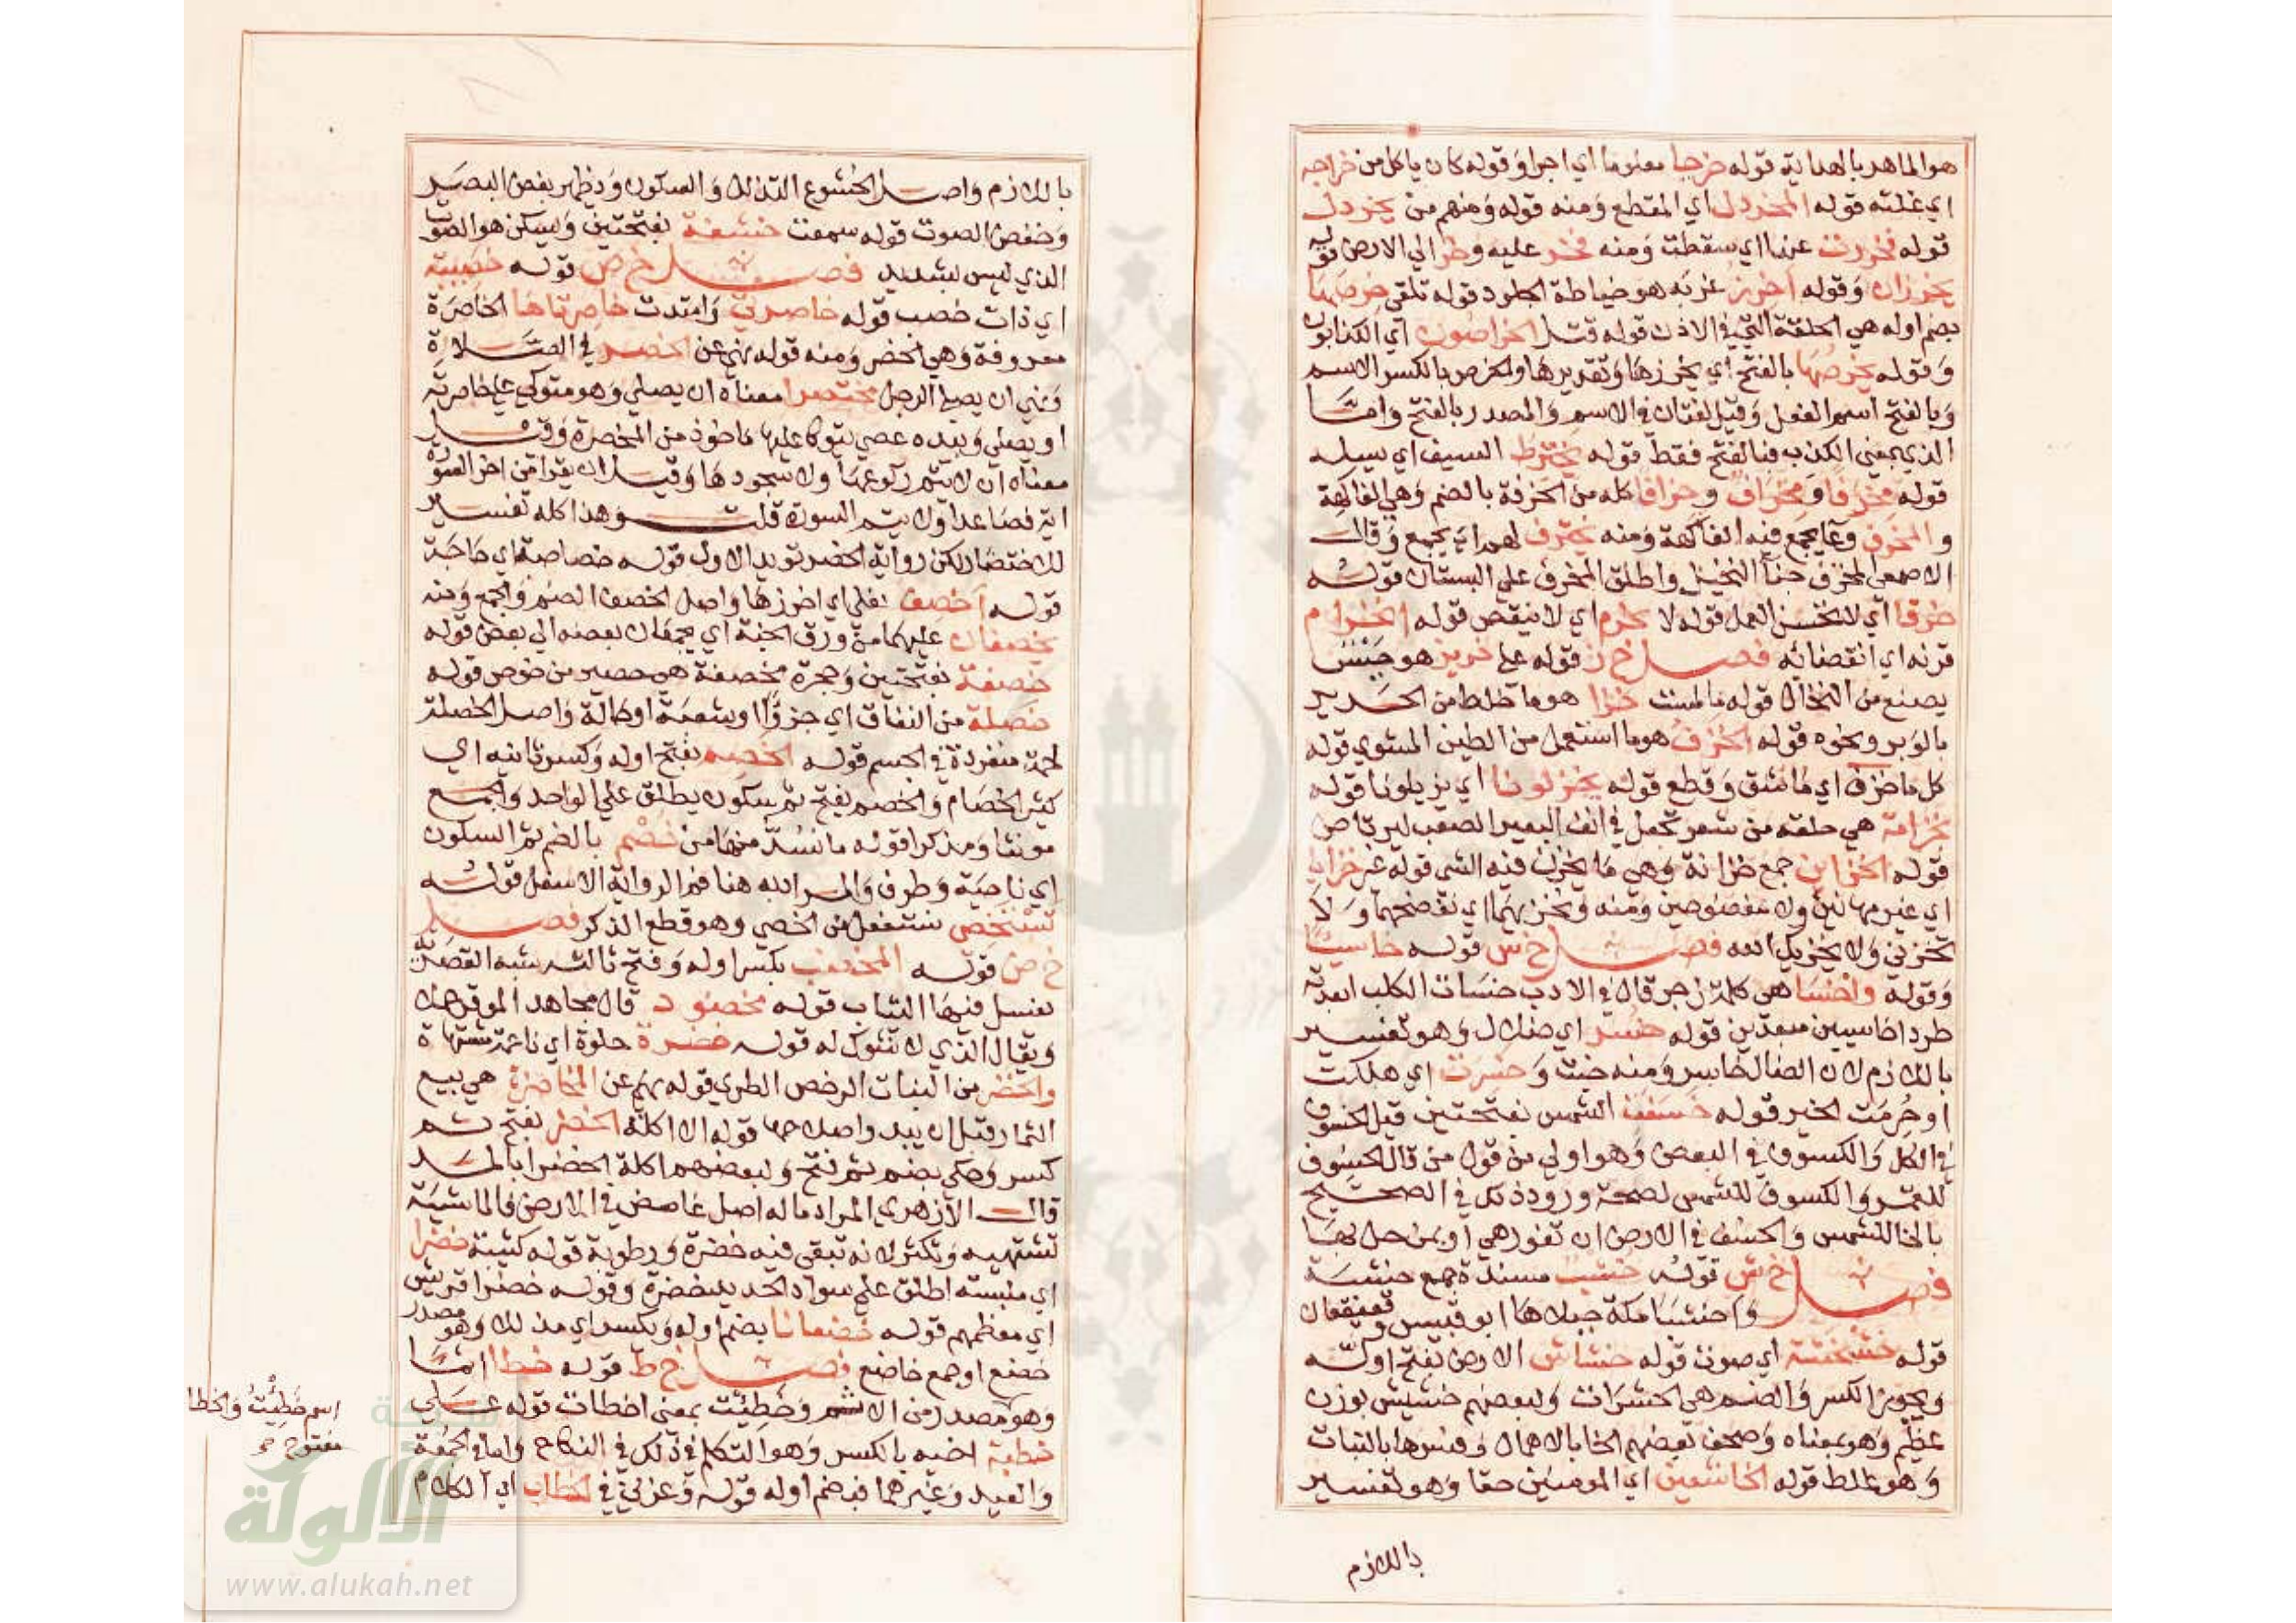 هو الماهر بالهداية قوله خرجا معلوما اي اجرا وقوله كان ياكل من خراجه
اي غلته قوله المخردل اي المقطع ومنه قوله ومنهم من يخردل
قوله فخررت عنها اي سقطت ومنه فخر عليه وخر الي الارض قوله
يخرزان وقوله اخرز غربه هو خياطة الجلود قوله تلقي خرصها
بضم اوله هي الحلقة التي في الاذن قوله قتل الخراصون اي الكذابون
وقوله يخرصها بالفتح اي يخرزها وتقديرها والخرص بالكسر الاسم
وبالفتح اسم الفعل وقيل لغتان في الاسم والمصدر بالفتح واما
الذي بمعني الكذب فبالفتح فقط قوله يخترط السيف اي يسله
قوله مخرفا ومخراف وخرافا كله من الخرفة بالضم وهي الفاكهة
والمخرف وعا يجمع فيه الفاكهة ومنه يخترف لهم اي يجمع وقال
الاصمعي المخرف جنا النخيل واطلق المخرف علي البستان قوله
خرقا اي لا تحسن العمل قوله لا يخرم اي لا ينقص قوله انخرام
قرنه اي انقضائه فصل خ ز قوله علي خزيز هو جنس
يصنع من النخال قوله ما لمست خزا هو ما خلط من الحرير
بالوبر ونحوه قوله الخزف هو ما استعمل من الطين المستوي قوله
كل ما خزق اي ما شق وقطع قوله يختزلونا اي يزيلونا قوله
بخزامة هي حلقة من شعر تجعل في انف البعير الصعب ليرتاض
قوله الخزاين جمع خزانة وهي ما يخزن فيه الشي قوله غير خزايا
اي غير مهانين ولا مفضوحين ومنه ونخزيهما اي نفضحهما ولا
تخزني ولا يخزيك الله فصل خ س قوله خاسيا
وقوله واخسا هي كلمة زجر قال في الادب خسات الكلب ابعدته
طردا خاسيين مبعدين قوله خسر اي ضلال وهو تفسير
باللازم لان الضال خاسر ومنه خبت وخسرت اي هلكت
او حرمت الخير قوله خسفت الشمس بفتحتين قيل الخسوف
في الكل والكسوف في البعض وهو اولي من قول من قال الخسوف
للقمر والكسوف للشمس لصحة ورود ذلك في الصحيح
بالخا للشمس والخسف في الارض ان تغور هي او بمن حل بها
فصل خ ش قوله خشب مسندة جمع خشبة
واخشبا مكة جبلاها ابو قبيس وقعيقعان
قوله خشخشة اي صوت قوله خشاش الارض بفتح اوله
ويجوز الكسر والضم هي الحشرات ولبعضهم خشيش بوزن
عظيم وهو بمعناه وصحف بعضهم الخا بالاهمال وفسرها بالنبات
وهو غلط قوله الخاشعين اي المومنين حقا وهو تفسير
باللازم
باللازم واصل الخشوع التذلل والسكون ويظهر بغض البصر
وخفض الصوت قوله سمعت خشفة بفتحتين ويسكن هو الصوت
الذي ليس بشديد فصل خ ص قوله خصيبة
اي ذات خصب قوله خاصرتي وامتدت خاصرتاها الخاصرة
معروفة وهي الخصر ومنه قوله نهي عن الخصر في الصلاة
ونهي ان يصلي الرجل مختصرا معناه ان يصلي وهو متوكي علي خاصرته
او يصلي وبيده عصي يتوكا عليها ماخوذ من المخصرة وقيل
معناه ان لا يتم ركوعها ولا سجودها وقيل ان يقرا من اخر السورة
اية فصاعدا ولا يتم السورة قلت وهذا كله تفسير
للاختصار لكن رواية الخصر تويد الاول قوله خصاصة اي حاجة
قوله اخصف نعلي اي اخرزها واصل الخصف الضم والجمع ومنه
يخصفان عليهما من ورق الجنة اي يجمعان بعضه الي بعض قوله
خصفة بفتحتين وحجرة مخصفة هو حصير من خوص قوله
خصلة من النفاق اي جزوا او شعبة او حالة واصل الخصلة
لحمة منفردة في الجسم قوله الخصم بفتح اوله وكسر ثانيه اي
كثير الخصام والخصم بفتح ثم سكون يطلق علي الواحد والجمع
مونثا ومذكرا قوله ما نسد منها من خصم بالضم ثم السكون
اي ناحية وطرف والمراد به هنا فم الراوية الاسفل قوله
نستخصي نستفعل من الخصي وهو قطع الذكر فصل
خ ض قوله المخضب بكسر اوله وفتح ثالثه شبه القصرية
تغسل فيها الثياب قوله مخضود قال مجاهد الموقر حملا
ويقال الذي لا شوك له قوله خضرة حلوة اي ناعمة مشتهاة
والخضر من النبات الرخص الطري قوله نهي عن المخاضرة هي بيع
الثمار قبل ان يبدو اصلاحها قوله الا اكلة الخضر بفتح ثم
كسر وحكي بضم ثم فتح ولبعضهم اكلة الخضرا بالمد
قال الازهري المراد ما له اصل غامض في الارض فالماشية
تشتهيه وتكثر لانه تبقي فيه خضرة ورطوبة قوله كتيبة خضرا
اي ملبسة اطلق علي سواد الحديد خضرة وقوله خضرا قريش
اي معظمهم قوله خضعانا بضم اوله وبكسر اي مذللا وهو مصدر
خضع او جمع خاضع فصل خ ط قوله خطا اثما
وهو مصدر من الاثم وخطئت بمعني اخطات قوله علي
خطبة اخيه بالكسر وهو التكلم في ذلك في النكاح واما في الجمعة
والعيد وغيرهما فبضم اوله قوله وعزني في الخطاب اي الكلام
اسم خطئت والخطا
مفتوح صح
شبكة
الألوكة
www.alukah.net